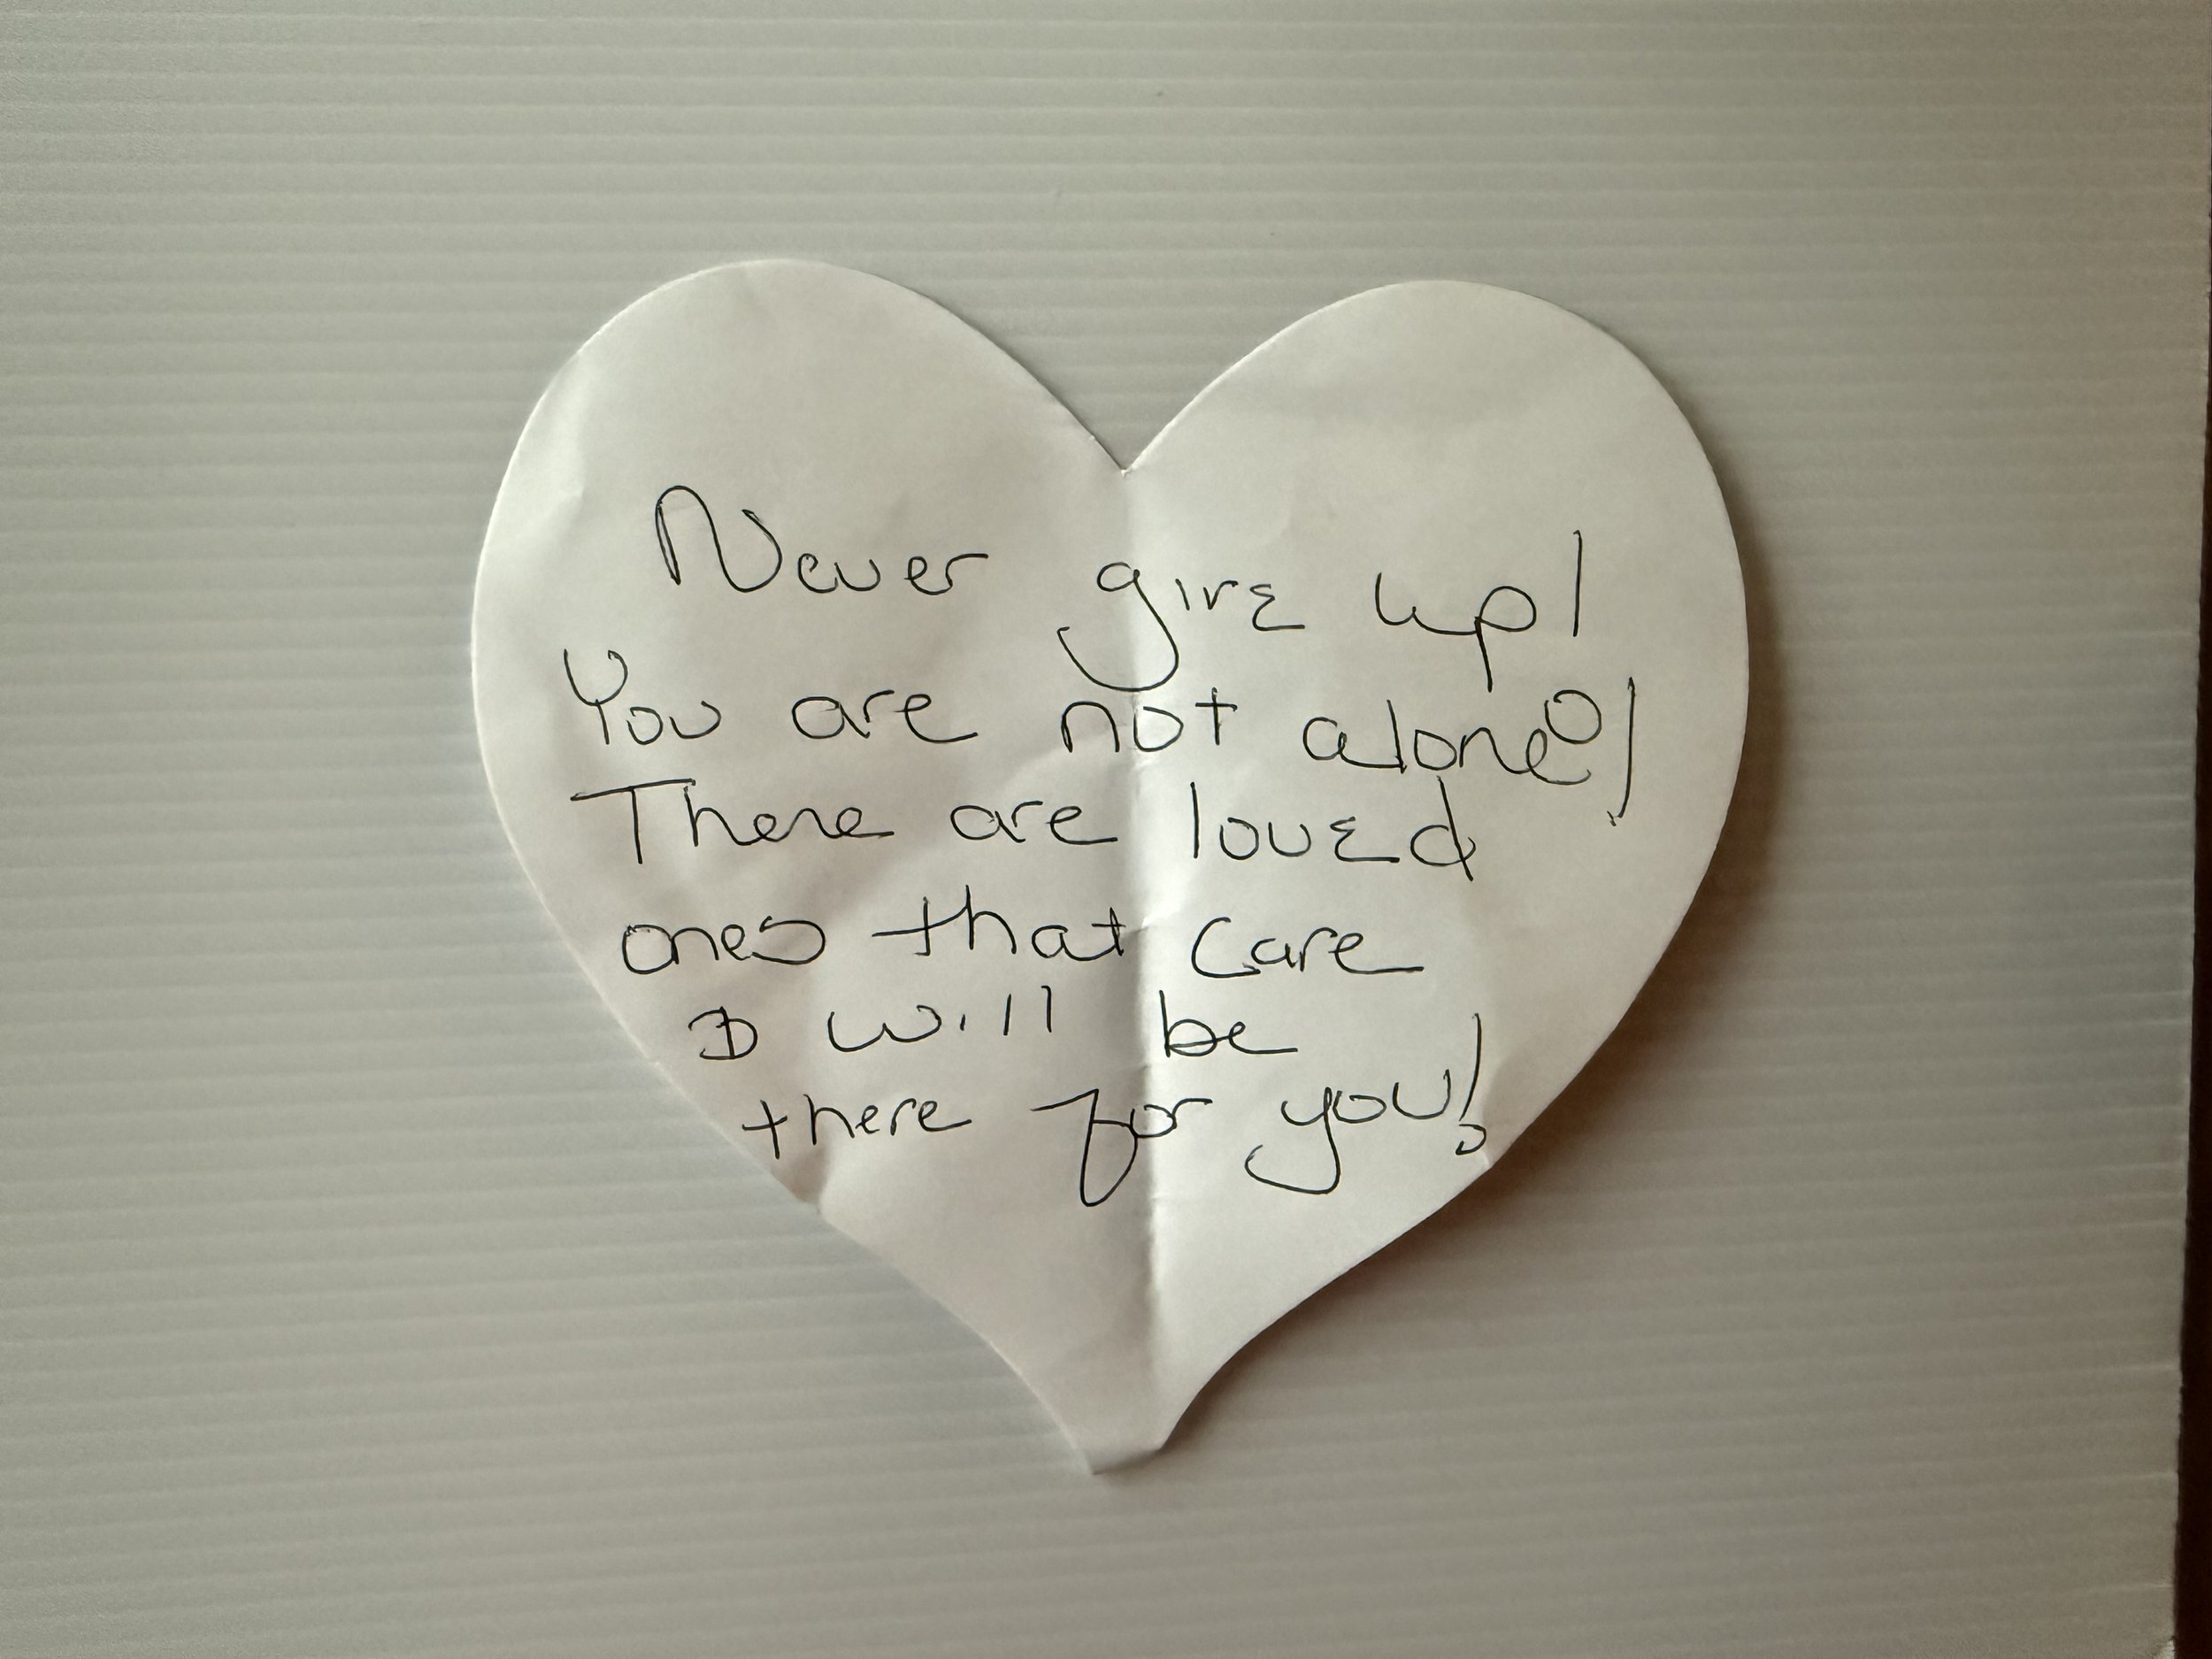 Never give up!
You are not alone!
There are loved
ones that care
& will be
there for you!